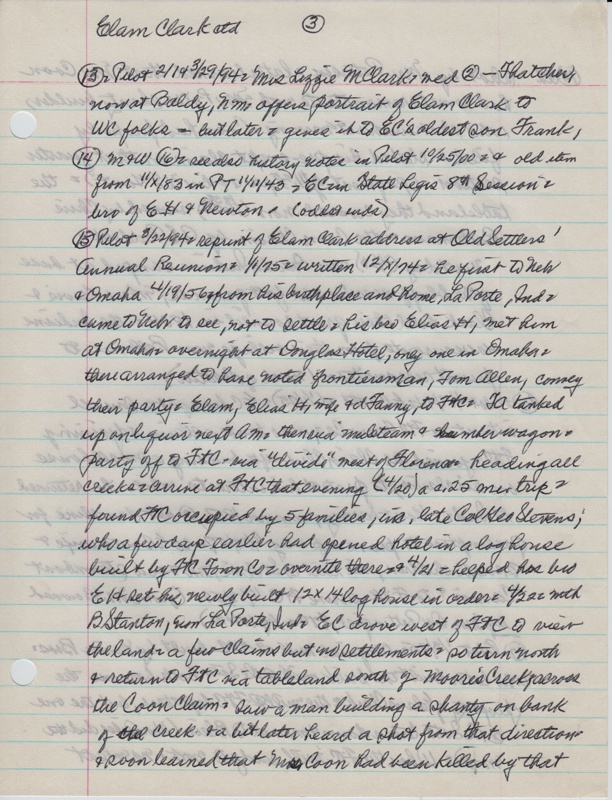 Elam Clark ctd ③
⑬ = Pilot 2/14 3/29/94 = Mrs Lizzie M Clark = wed ② - Thatcher,
now at Baldy, NM = offers portrait of Elam Clark to
WC folks - but later = gives it to EC's oldest son Frank,
⑭ M & W ⑯ = see also history notes in Pilot 10/25/00 = & old item
from 11/X/83 in PT 11/11/43 = EC in State Legis 8th Session =
bro of E H & Newton - (odds & ends)
⑮ Pilot 3/22/94 = reprint of Elam Clark address at Old Settlers'
Annual Reunion = 1/1/75 = written 12/X/74 = he first to Nebr
& Omaha 4/19/56 = from his birthplace and home, La Porte, Ind =
came to Nebr to see, not to settle = his bro Elias H, met him
at Omaha = overnight at Douglas Hotel, only one in Omaha =
there arranged to have noted frontiersman, Tom Allen, convey
their party = Elam, Elias H, wife & d Fanny, to FtC = TA tanked
up on liquor next AM = then via mule team & lumber wagon =
party off to FtC - via "divide" west of Florence = heading all
creeks = arrive at FtC that evening (4/20) a ca. 25 mi trip =
found FtC occupied by 5 families, inc, late Col Geo Stevens,
who a few days earlier had opened hotel in a log house
built by FtC Town Co = overnite there = & 4/21 = helped his bro
E H set his newly built 12 X 14 log house in order = 4/22 = with
B Stanton, from La Porte, Ind = EC drove west of FtC to view
the land = a few claims but no settlements = so turn north
& return to FtC via tableland south of Moore's Creek, across
the Coon Claim = saw a man building a shanty on bank
of creek & a bit later heard a shot from that direction =
& soon learned that Mr Coon had been killed by that